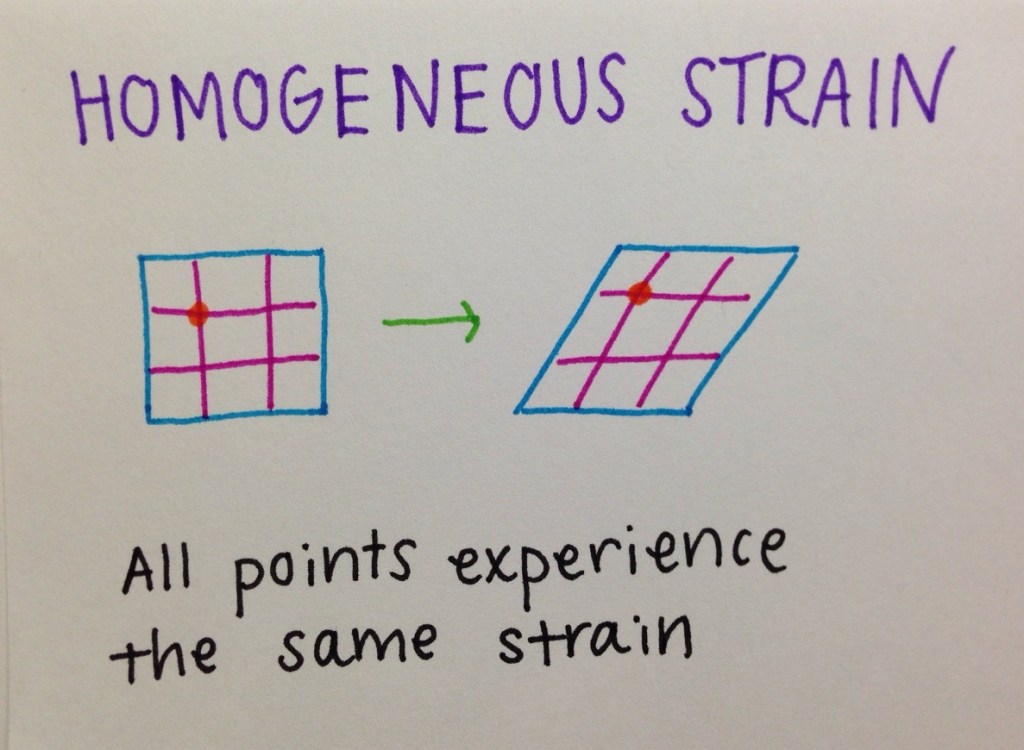 HOMOGENEOUS STRAIN
All points experience
the same strain